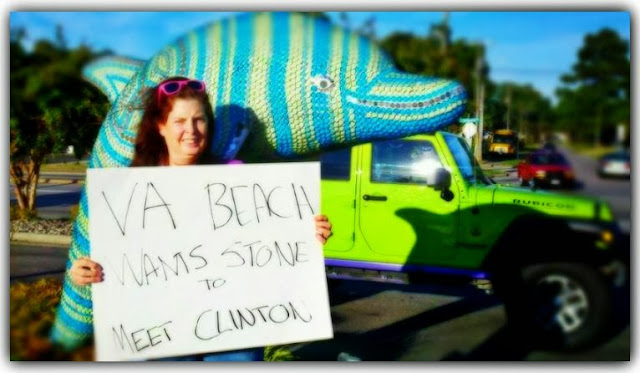 VA BEACH
WANTS STONE
TO
MEET CLINTON
RUBICON